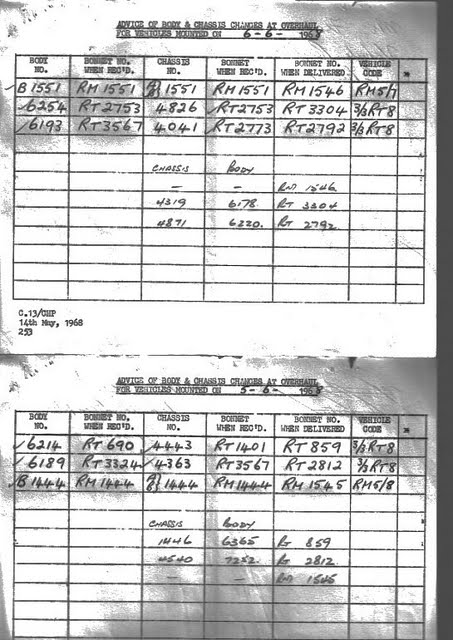 ADVICE OF BODY & CHASSIS CHANGES AT OVERHAUL
FOR VEHICLES MOUNTED ON 6-6- 1968
BODY NO. BONNET NO. WHEN REC'D. CHASSIS NO. BONNET WHEN REC'D. BONNET NO. WHEN DELIVERED VEHICLE CODE *
B1551 RM1551 1551 RM1551 RM1546 RM5/7
6254 RT2753 4826 RT2753 RT3304 3/3RT8
6193 RT3567 4041 RT2773 RT2792 3/3RT8
CHASSIS BODY
— — RM 1546
4319 6178 RT 3304
4871 6220. RT 2792
C.13/CHP
14th May, 1968
253
ADVICE OF BODY & CHASSIS CHANGES AT OVERHAUL
FOR VEHICLES MOUNTED ON 5-6- 1968
BODY NO. BONNET NO. WHEN REC'D. CHASSIS NO. BONNET WHEN REC'D. BONNET NO. WHEN DELIVERED VEHICLE CODE *
6214 RT690 4443 RT1401 RT859 3/3RT8
6189 RT3324 4363 RT3567 RT2812 3/3RT8
B1444 RM1444 1444 RM1444 RM1545 RM5/8
CHASSIS BODY
1446 6365 RT 859
4540 7252 RT 2812
— — RM 1545